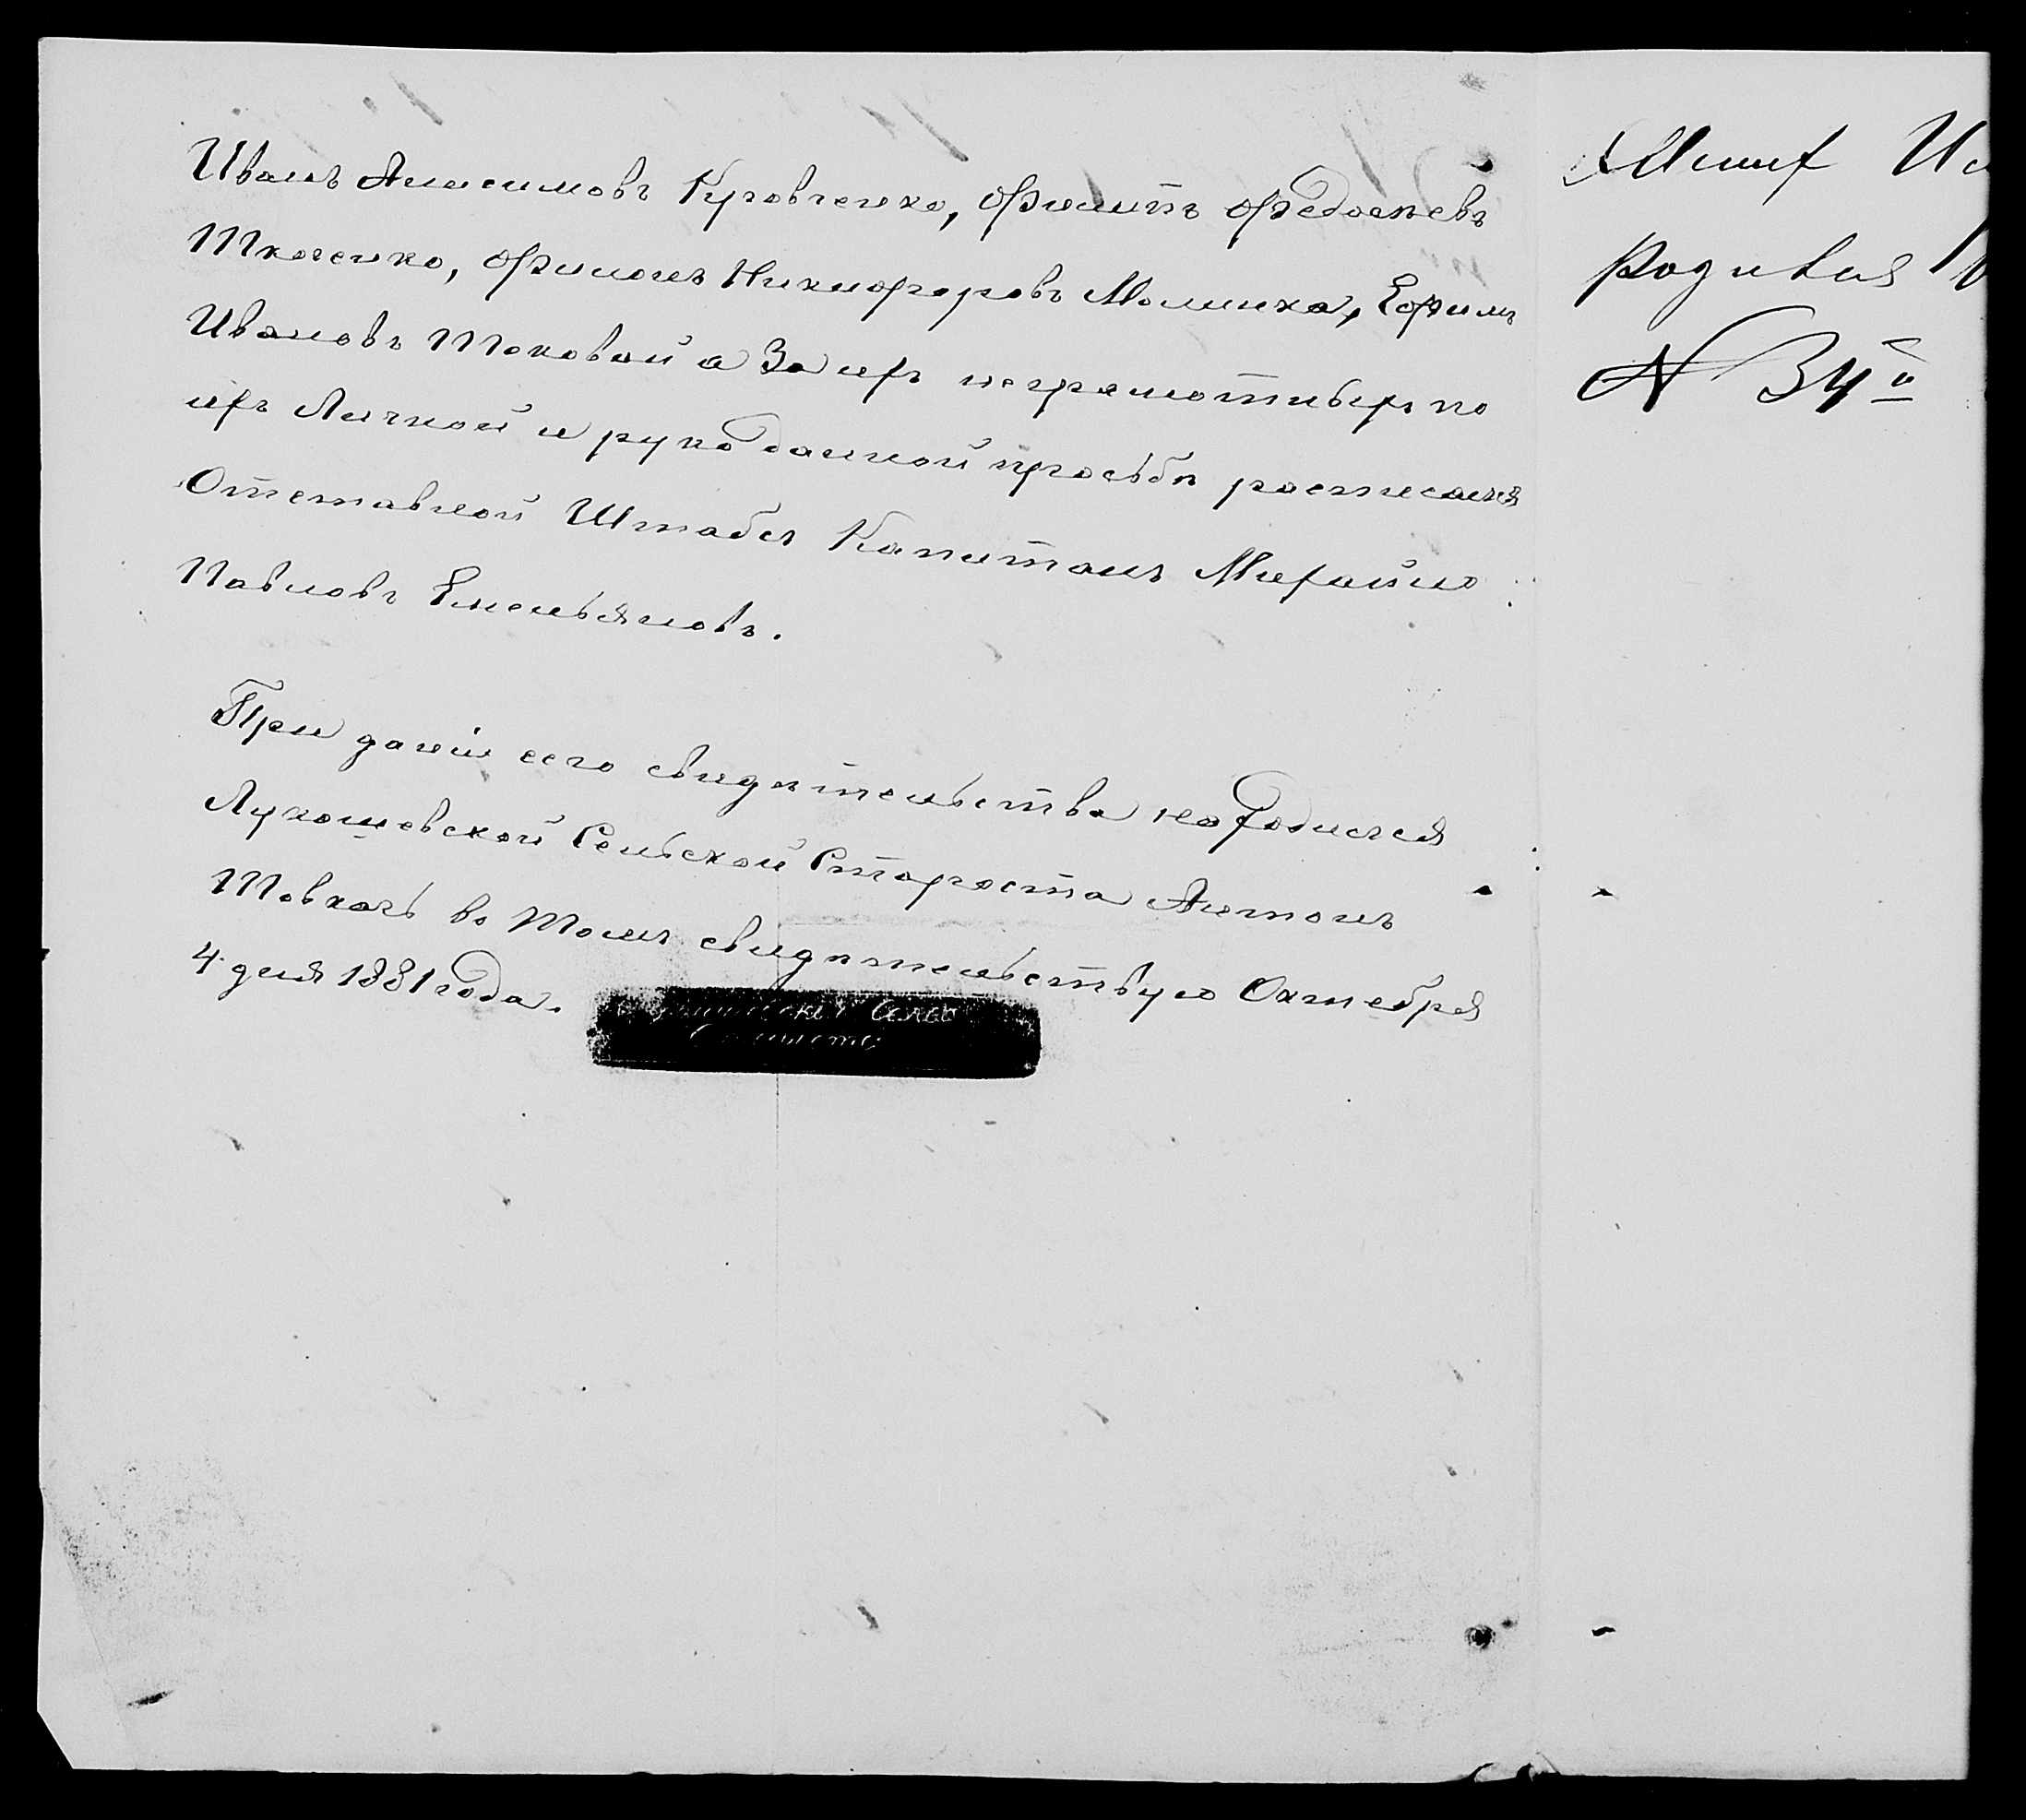 Иванъ Анисимовъ Куровченко, Филипъ Федосѣевъ
Ткаченко, Филонъ Никифоровъ Малинка, Ефимъ
Ивановъ Токовай а За ихъ неграмотныхъ по
ихъ Личной и рукоданной прозьбѣ росписался
Отставной Штабсъ Капитанъ Михайло
Павловъ Емельяновъ.
При дачи сего свидѣтельства находился
Лукашевской Сельской Староста Антонъ
Товкачъ во томъ свидѣтельствую Октебря
4. дня 1881 года.
Родивая
N 34